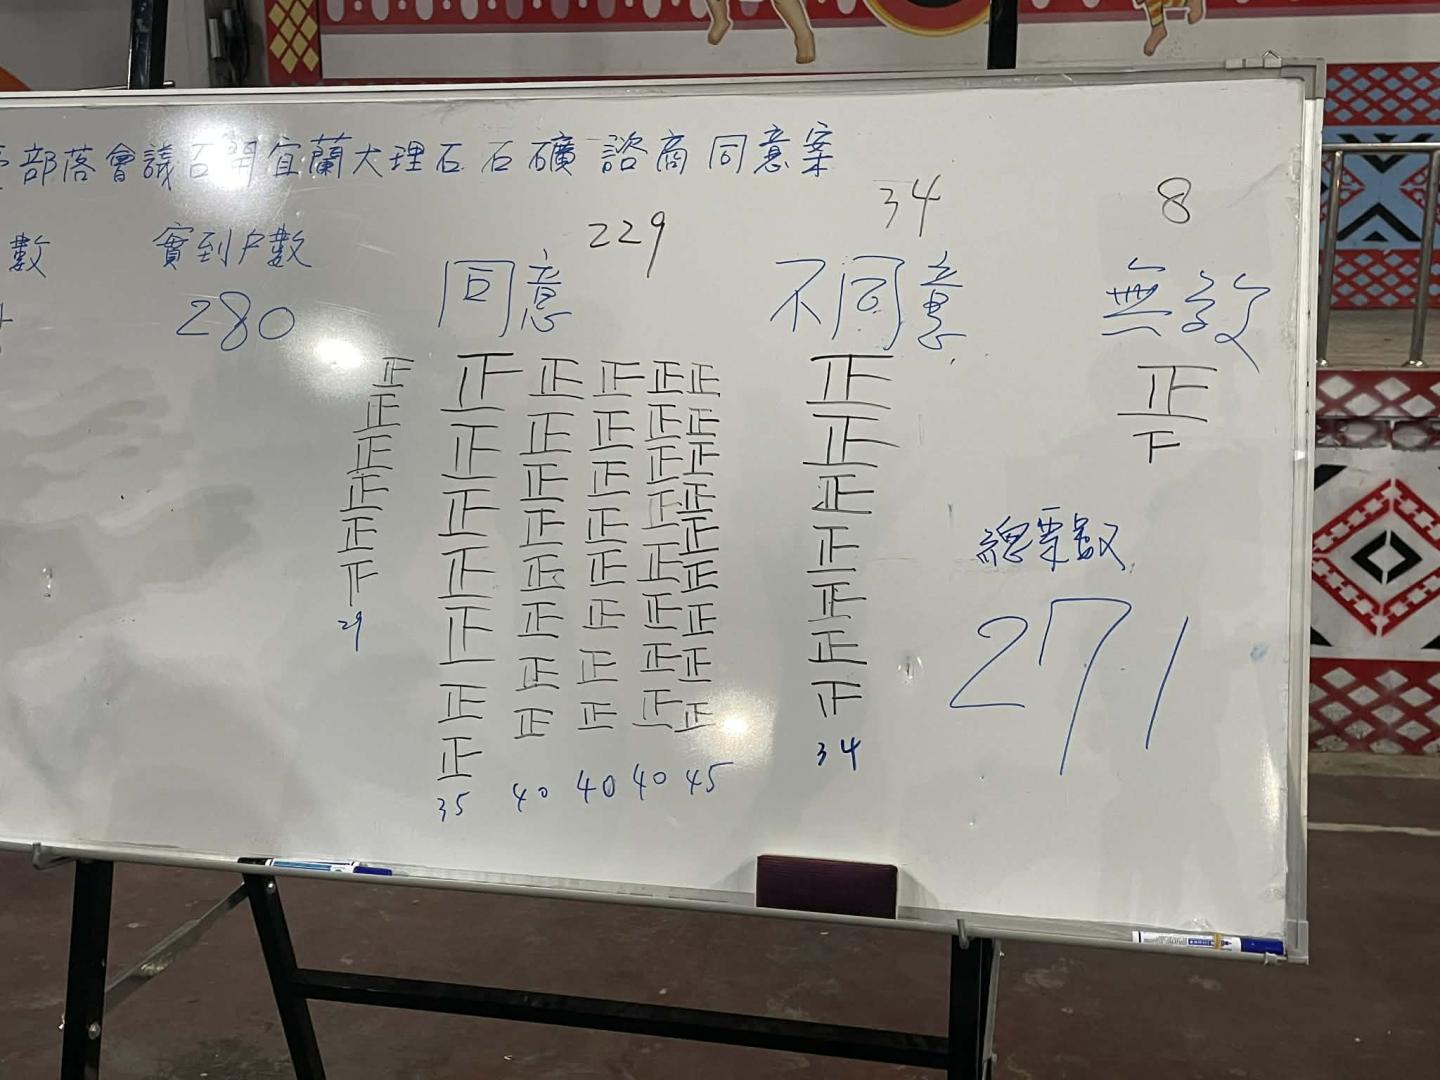 部落會議召開宜蘭大理石石礦諮商同意案
數 實到戶數 229 34 8
280 同意 不同意 無效
正 正 正 正 正 正 正 正
正 正 正 正 正 正 正 下
正 正 正 正 正 正 正
正 正 正 正 正 正 正
正 正 正 正 正 正 正
下 正 正 正 正 正 正
29 正 正 正 正 正 正
正 正 正 正
35 40 40 40 45 34
正
總票數
271